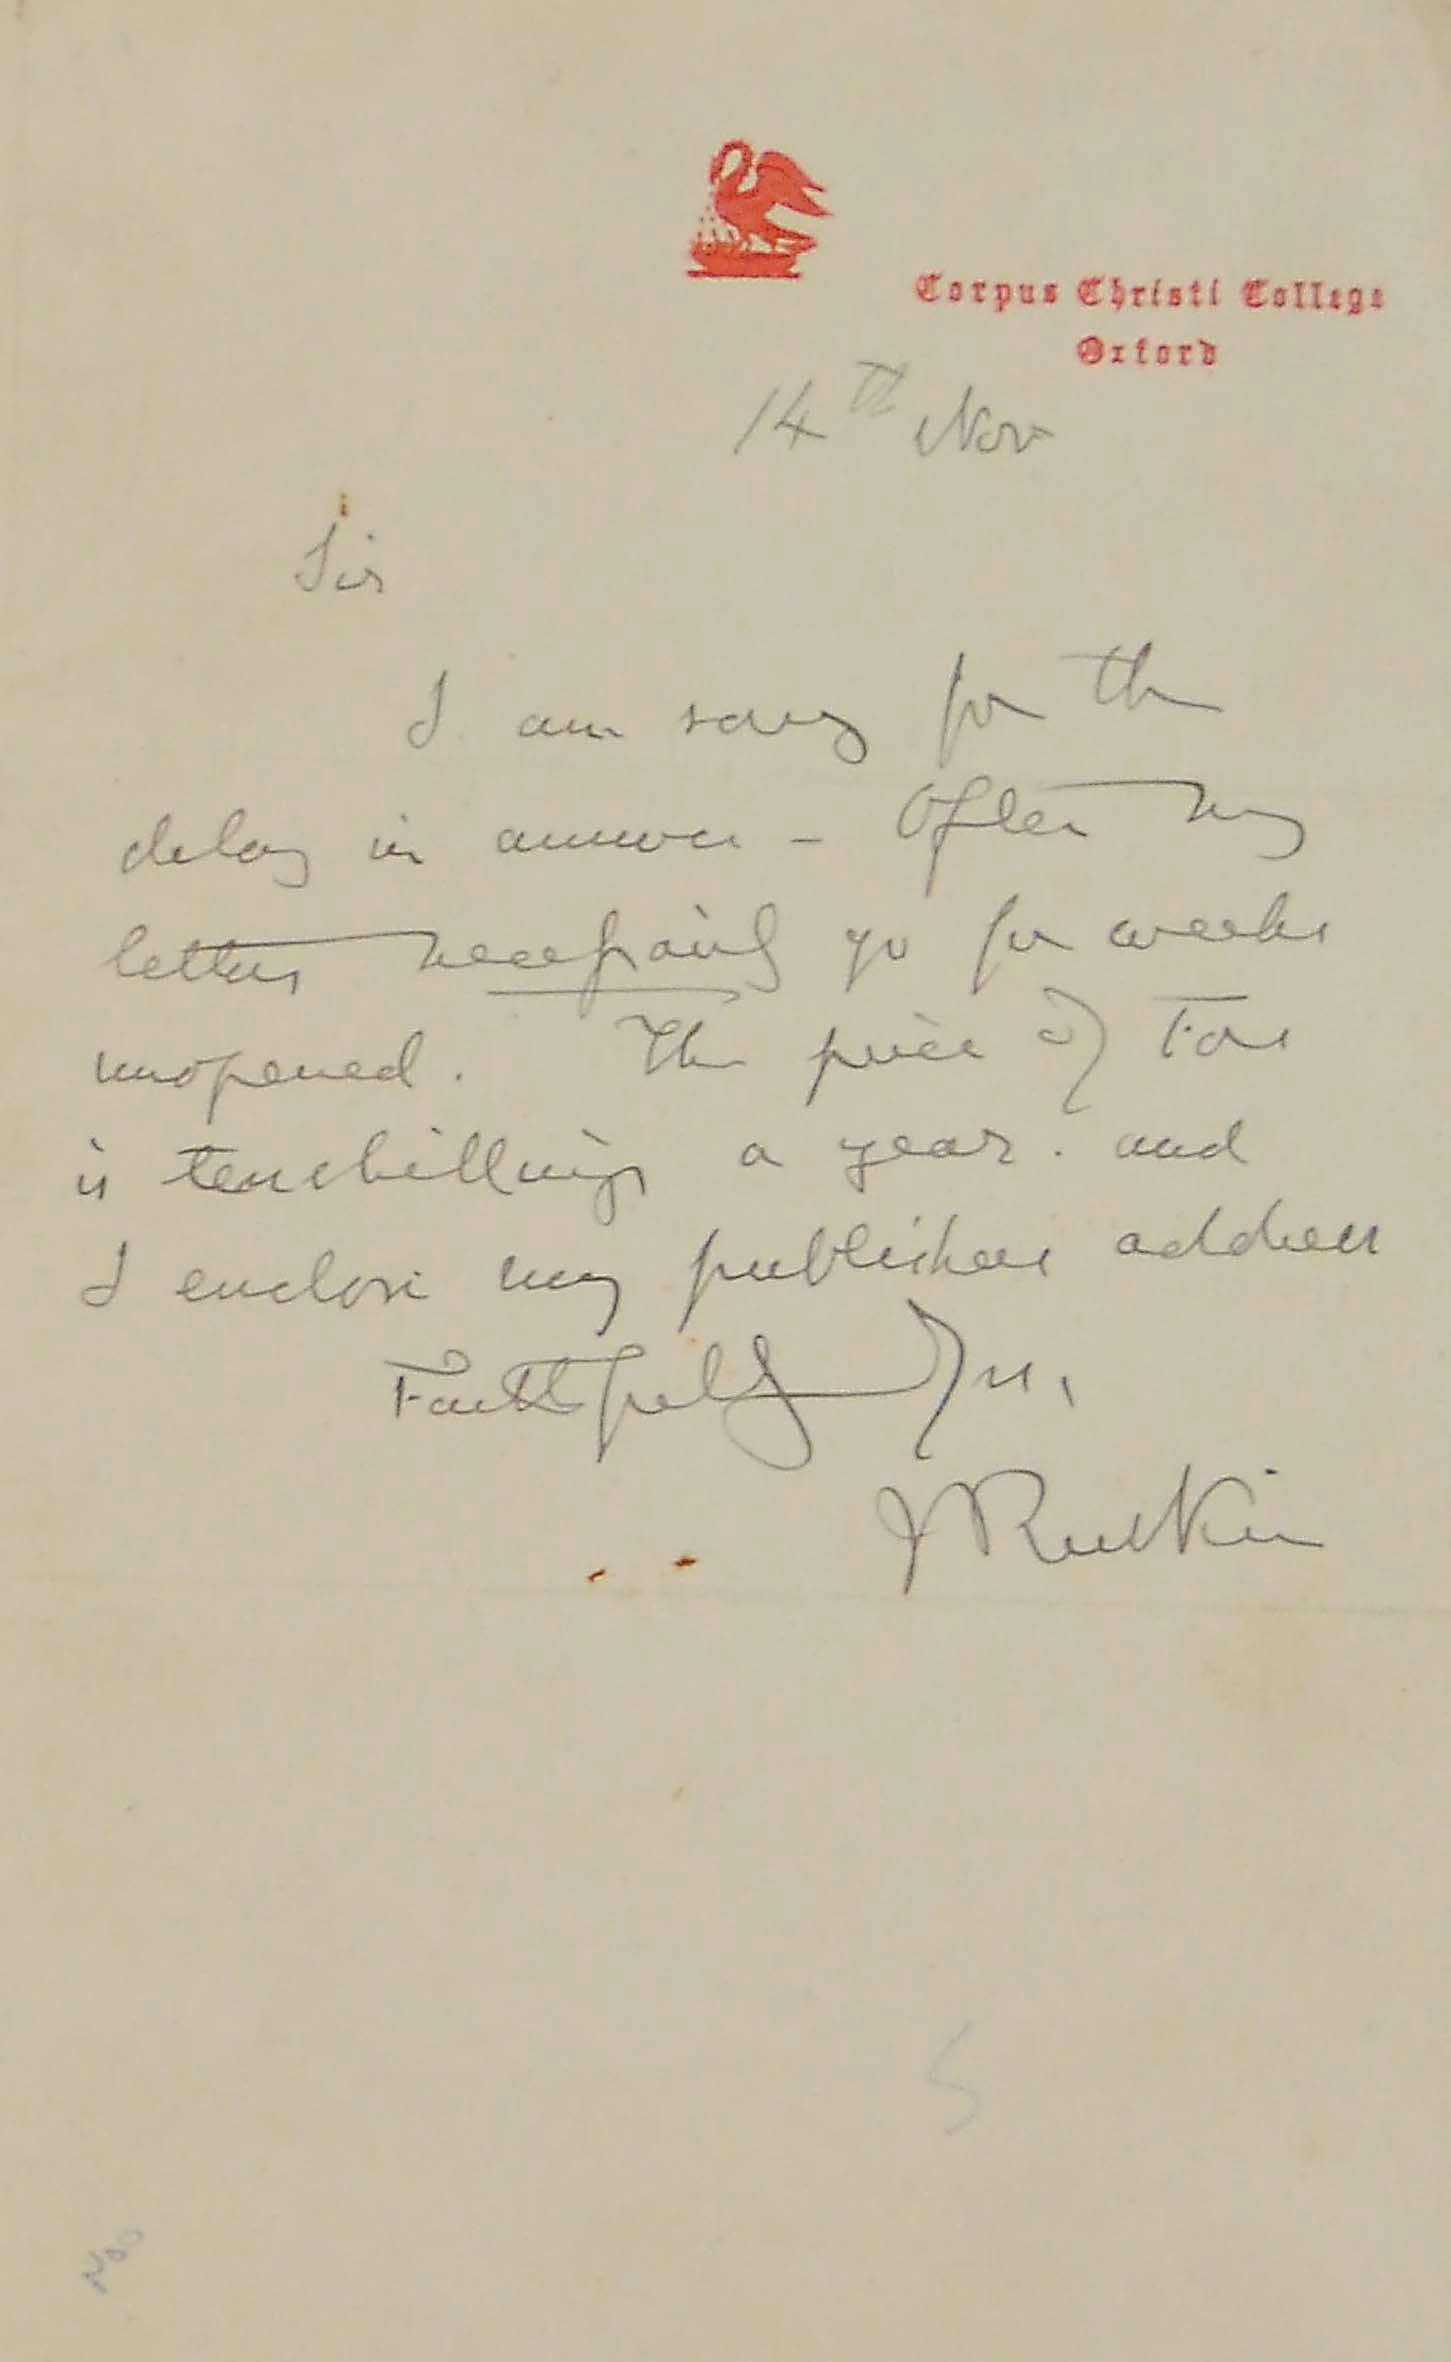 Corpus Christi College
Oxford
14th Nov
Sir
I am sorry for the
delay in answer - Often my
letters necessarily go for weeks
unopened. The price of Fors
is ten shillings a year. and
I enclose my publishers address
Faithfully Yrs.
J Ruskin